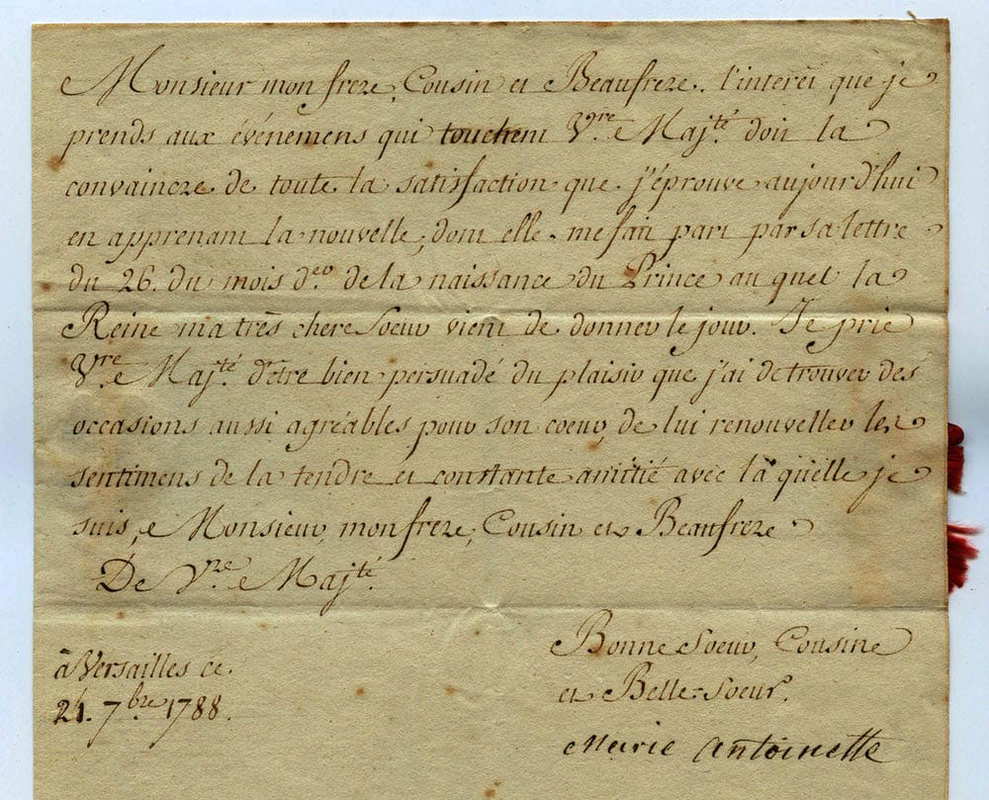 Monsieur mon frere, Cousin et Beaufrere. l'interêt que je
prends aux événemens qui touchent V.re Maj.té doit la
convaincre de toute la satisfaction que j'éprouve aujourd'hui
en apprenant la nouvelle, dont elle me fait part par sa lettre
du 26. du mois d.er de la naissance du Prince au quel la
Reine ma très chere Soeur vient de donner le jour. Je prie
V.re Maj.té d'être bien persuadé du plaisir que j'ai de trouver des
occasions aussi agréables pour son coeur, de lui renouveller les
sentimens de la tendre et constante amitié avec la quelle je
suis, Monsieur, mon frere, Cousin et Beaufrere
De V.re Maj.té
à Versailles ce.
21. 7bre 1788.
Bonne Soeur, Cousine
et Belle-Soeur.
Marie Antoinette